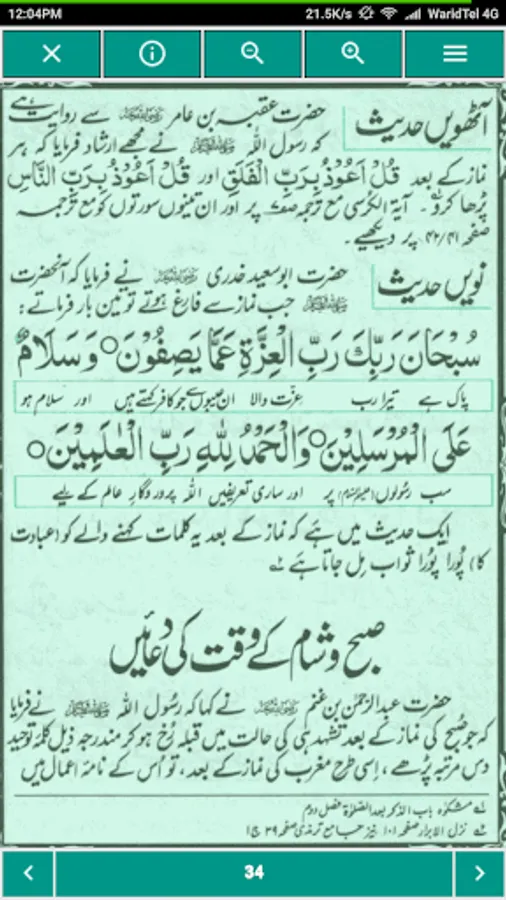 12:04PM 21.5K/s WaridTel 4G
آٹھویں حدیث
حضرت عقبہ بن عامر رضی اللہ عنہ سے روایت ہے
کہ رسول اللہ ﷺ نے مجھے ارشاد فرمایا کہ ہر
نماز کے بعد قُلْ اَعُوْذُ بِرَبِّ الْفَلَقِ اور قُلْ اَعُوْذُ بِرَبِّ النَّاسِ
پڑھا کرو۔ آیۃ الکرسی مع ترجمہ صفحہ پر اور ان تینوں سورتوں کو مع ترجمہ
صفحہ ۴۲/۴۱ پر دیکھیے۔
نویں حدیث
حضرت ابوسعید خدری رضی اللہ عنہ نے فرمایا کہ آنحضرت
ﷺ جب نماز سے فارغ ہوتے تو تین بار فرماتے:
سُبْحَانَ رَبِّكَ رَبِّ الْعِزَّةِ عَمَّا يَصِفُوْنَ○ وَسَلَامٌ
پاک ہے تیرا رب عزت والا ان عیبوں سے جو کافر کہتے ہیں اور سلام ہو
عَلَى الْمُرْسَلِيْنَ○ وَالْحَمْدُ لِلّٰهِ رَبِّ الْعٰلَمِيْنَ○
سب رسولوں (علیہم السلام) پر اور ساری تعریفیں اللہ پروردگارِ عالم کے لیے
ایک حدیث میں ہے کہ نماز کے بعد یہ کلمات کہنے والے کو (عبادت
کا) پُورا پُورا ثواب مِل جاتا ہے
صبح و شام کے وقت کی دعائیں
حضرت عبدالرحمٰن بن غنم رضی اللہ عنہ نے کہا کہ رسُول اللہ ﷺ نے فرمایا
کہ جو صُبح کی نماز کے بعد تشہد ہی کی حالت میں قبلہ رُخ ہو کر مندرجہ ذیل کلمۂ توحید
دس مرتبہ پڑھے، اِسی طرح مغرب کی نماز کے بعد، تو اُس کے نامۂ اعمال میں
لہ مشکوٰۃ باب الذکر بعد الصلوٰۃ فصل دوم
نزل الابرار صفحہ ۱۰۱ نیز جامع ترمذی صفحہ ۳۹ ج۱
34